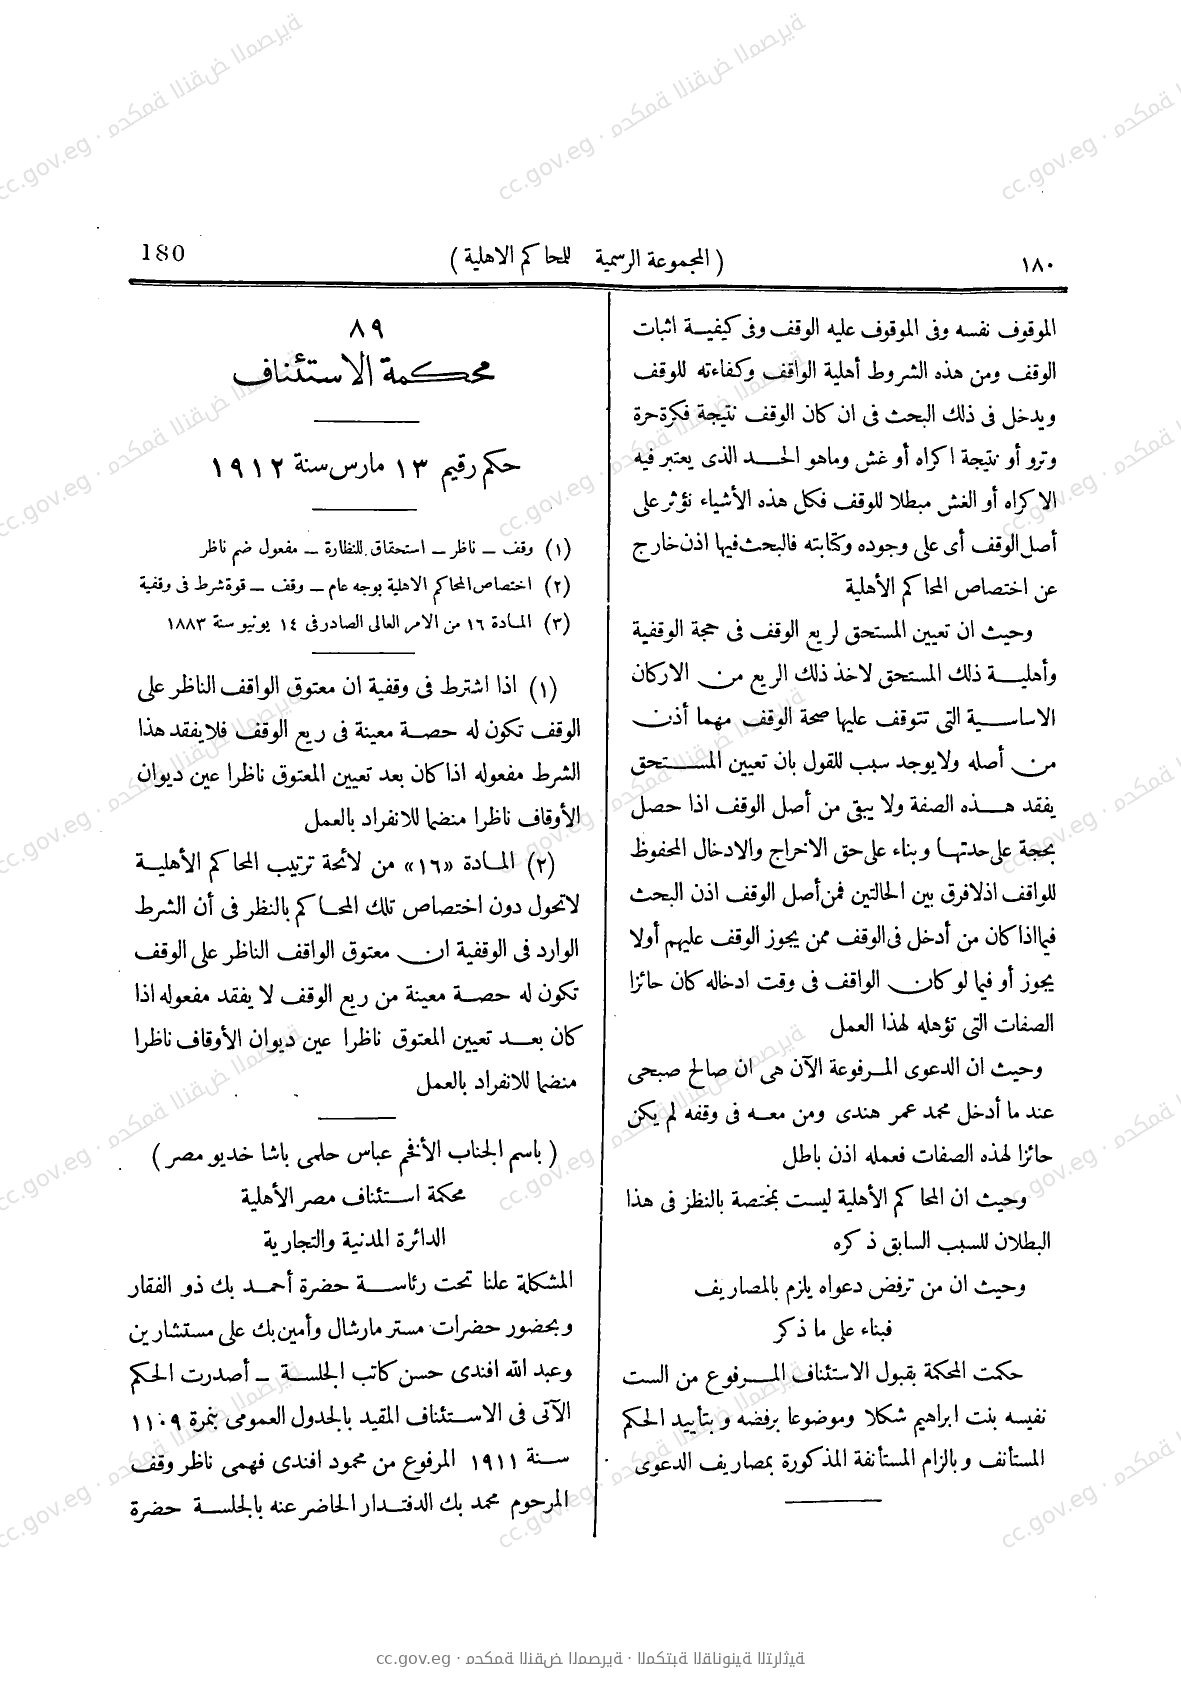 ١٨٠
( المجموعة الرسمية للمحاكم الاهلية )
180
الموقوف نفسه وفى الموقوف عليه الوقف وفى كيفية اثبات
الوقف ومن هذه الشروط أهلية الواقف وكفاءته للوقف
ويدخل فى ذلك البحث فى ان كان الوقف نتيجة فكرة حرة
وترو أو نتيجة اكراه أو غش وماهو الحد الذى يعتبر فيه
الاكراه أو الغش مبطلا للوقف فكل هذه الأشياء تؤثر على
أصل الوقف أى على وجوده وكتابته فالبحث فيها اذن خارج
عن اختصاص المحاكم الأهلية
وحيث ان تعيين المستحق لريع الوقف فى حجة الوقفية
وأهلية ذلك المستحق لاخذ ذلك الريع من الاركان
الاساسية التى تتوقف عليها صحة الوقف مهما أذن
من أصله ولا يوجد سبب للقول بان تعيين المستحق
يفقد هذه الصفة ولا يبقى من أصل الوقف اذا حصل
بحجة على حدتها وبناء على حق الاخراج والادخال المحفوظ
للواقف اذ لافرق بين الحالتين فمن أصل الوقف اذن البحث
فيما اذا كان من أدخل فى الوقف ممن يجوز الوقف عليهم أولا
يجوز أو فيما لو كان الواقف فى وقت ادخاله كان حائزا
الصفات التى تؤهله لهذا العمل
وحيث ان الدعوى المرفوعة الآن هى ان صالح صبحى
عند ما أدخل محمد عمر هندى ومن معه فى وقفه لم يكن
حائزا لهذه الصفات فعمله اذن باطل
وحيث ان المحاكم الأهلية ليست بمختصة بالنظر فى هذا
البطلان للسبب السابق ذكره
وحيث ان من ترفض دعواه يلزم بالمصاريف
فبناء على ما ذكر
حكمت المحكمة بقبول الاستئناف المرفوع من الست
نفيسه بنت ابراهيم شكلا وموضوعا برفضه وبتأييد الحكم
المستأنف وبالزام المستأنفة المذكورة بمصاريف الدعوى
٨٩
محكمة الاستئناف
حكم رقيم ١٣ مارس سنة ١٩١٢
(١) وقف – ناظر – استحقاق للنظارة – مفعول ضم ناظر
(٢) اختصاص المحاكم الاهلية بوجه عام – وقف – قوة شرط فى وقفية
(٣) المادة ١٦ من الامر العالى الصادر فى ١٤ يونيو سنة ١٨٨٣
(١) اذا اشترط فى وقفية ان معتوق الواقف الناظر على
الوقف تكون له حصة معينة فى ريع الوقف فلا يفقد هذا
الشرط مفعوله اذا كان بعد تعيين المعتوق ناظرا عين ديوان
الأوقاف ناظرا منضما للانفراد بالعمل
(٢) المادة «١٦» من لائحة ترتيب المحاكم الأهلية
لا تحول دون اختصاص تلك المحاكم بالنظر فى أن الشرط
الوارد فى الوقفية ان معتوق الواقف الناظر على الوقف
تكون له حصة معينة من ريع الوقف لا يفقد مفعوله اذا
كان بعد تعيين المعتوق ناظرا عين ديوان الأوقاف ناظرا
منضما للانفراد بالعمل
( باسم الجناب الأفخم عباس حلمى باشا خديو مصر )
محكمة استئناف مصر الأهلية
الدائرة المدنية والتجارية
المشكلة علنا تحت رئاسة حضرة أحمد بك ذو الفقار
وبحضور حضرات مستر مارشال وأمين بك على مستشارين
وعبد الله افندى حسن كاتب الجلسة – أصدرت الحكم
الآتى فى الاستئناف المقيد بالجدول العمومى بنمرة ١١٠٩
سنة ١٩١١ المرفوع من محمود افندى فهمى ناظر وقف
المرحوم محمد بك الدفتدار الحاضر عنه بالجلسة حضرة
cc.gov.eg · محكمة النقض المصرية · المكتبة القانونية التراثية